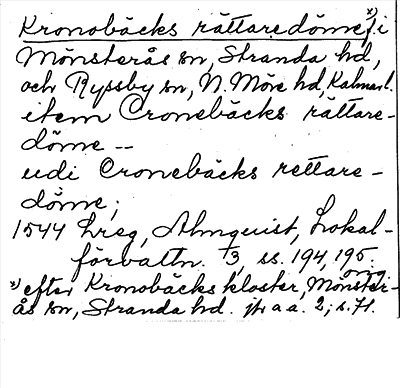 Kronobäcks rättaredöme x), i
Mönsterås sn, Stranda hd,
och Ryssby sn, N. Möre hd, Kalmar l.
item Cronebäcks rättare-
döme --
udi Cronebäcks rettare-
döme;
1544 Lreg, Almquist, Lokal-
förvaltn. 1/3, ss. 194, 195.
x) efter Kronobäcks kloster, Mönster-
ås sn, Stranda hd. jfr a a. 2; s. 71.